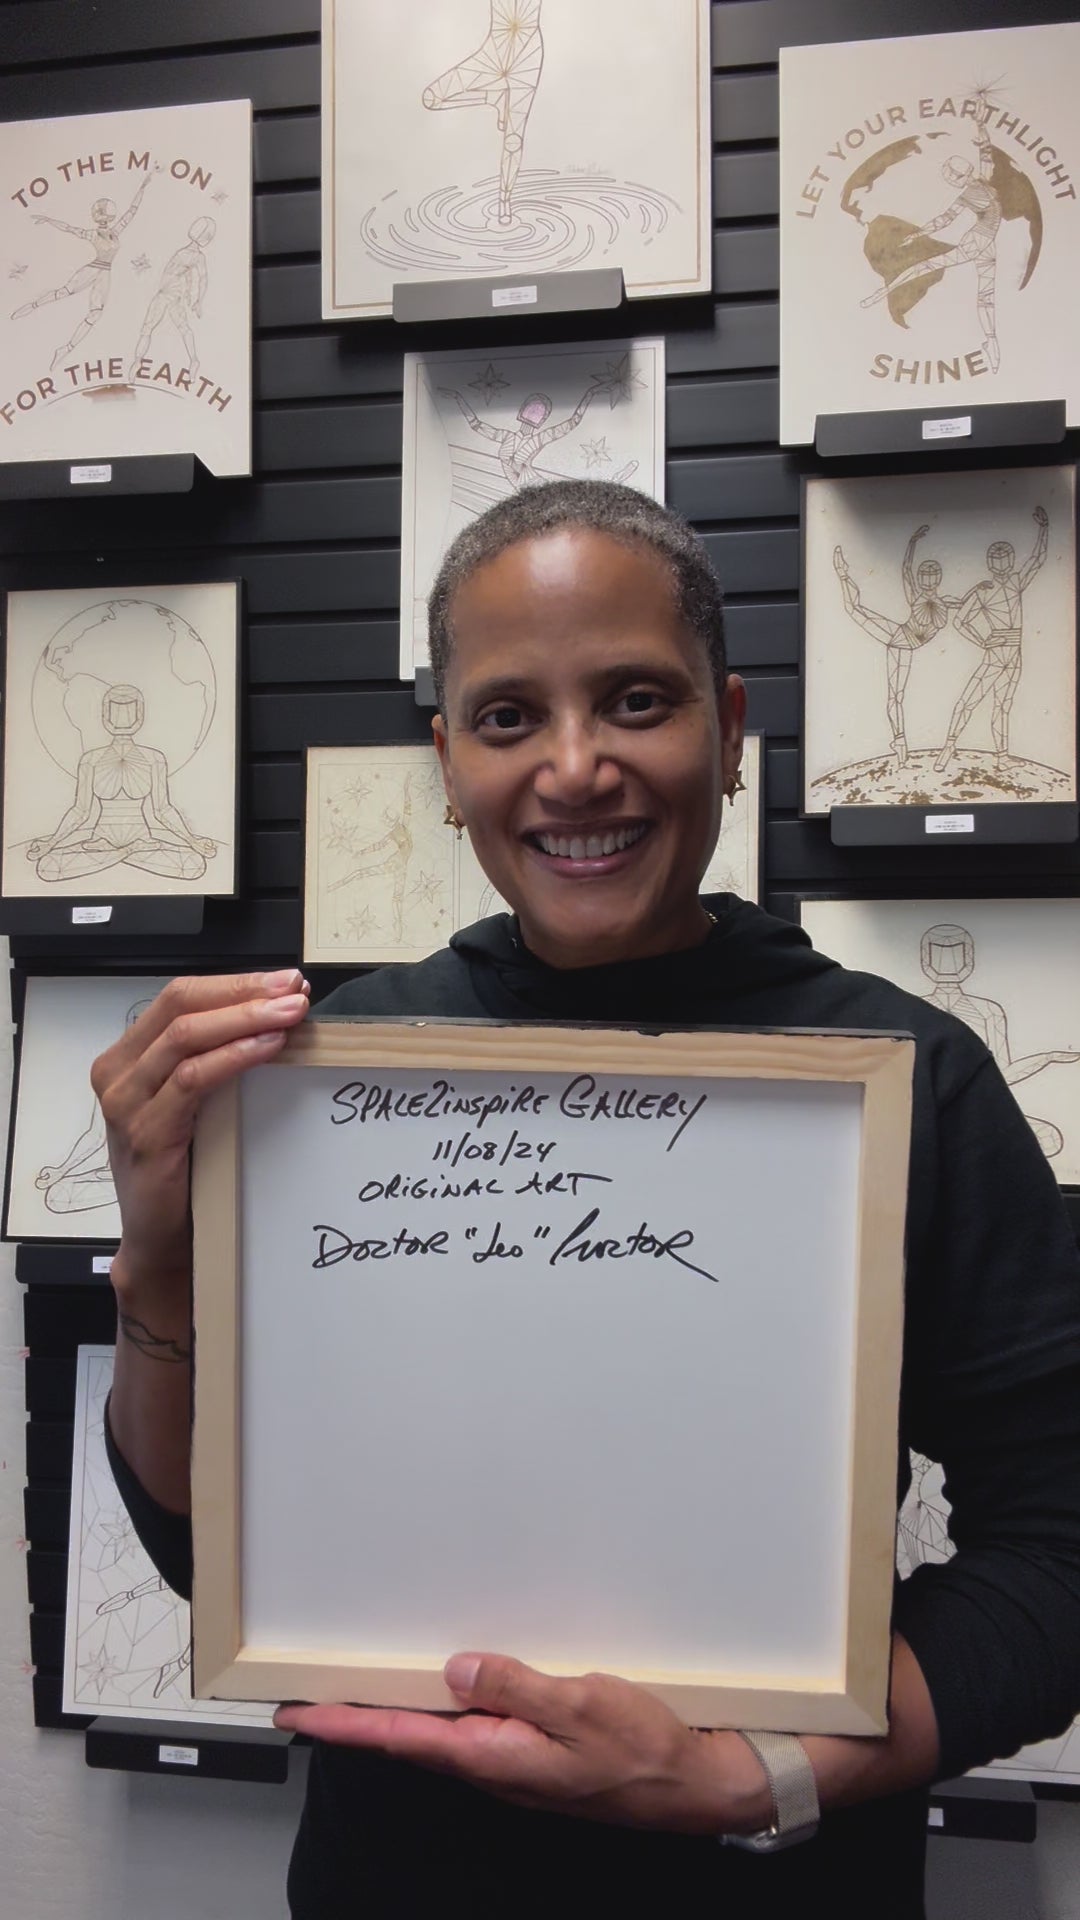 TO THE MOON
FOR THE EARTH
LET YOUR EARTHLIGHT
SHINE
SPACE2inspiRE GALLERY
11/08/24
ORiGiNAL ART
DOctOR "Leo" Proctor